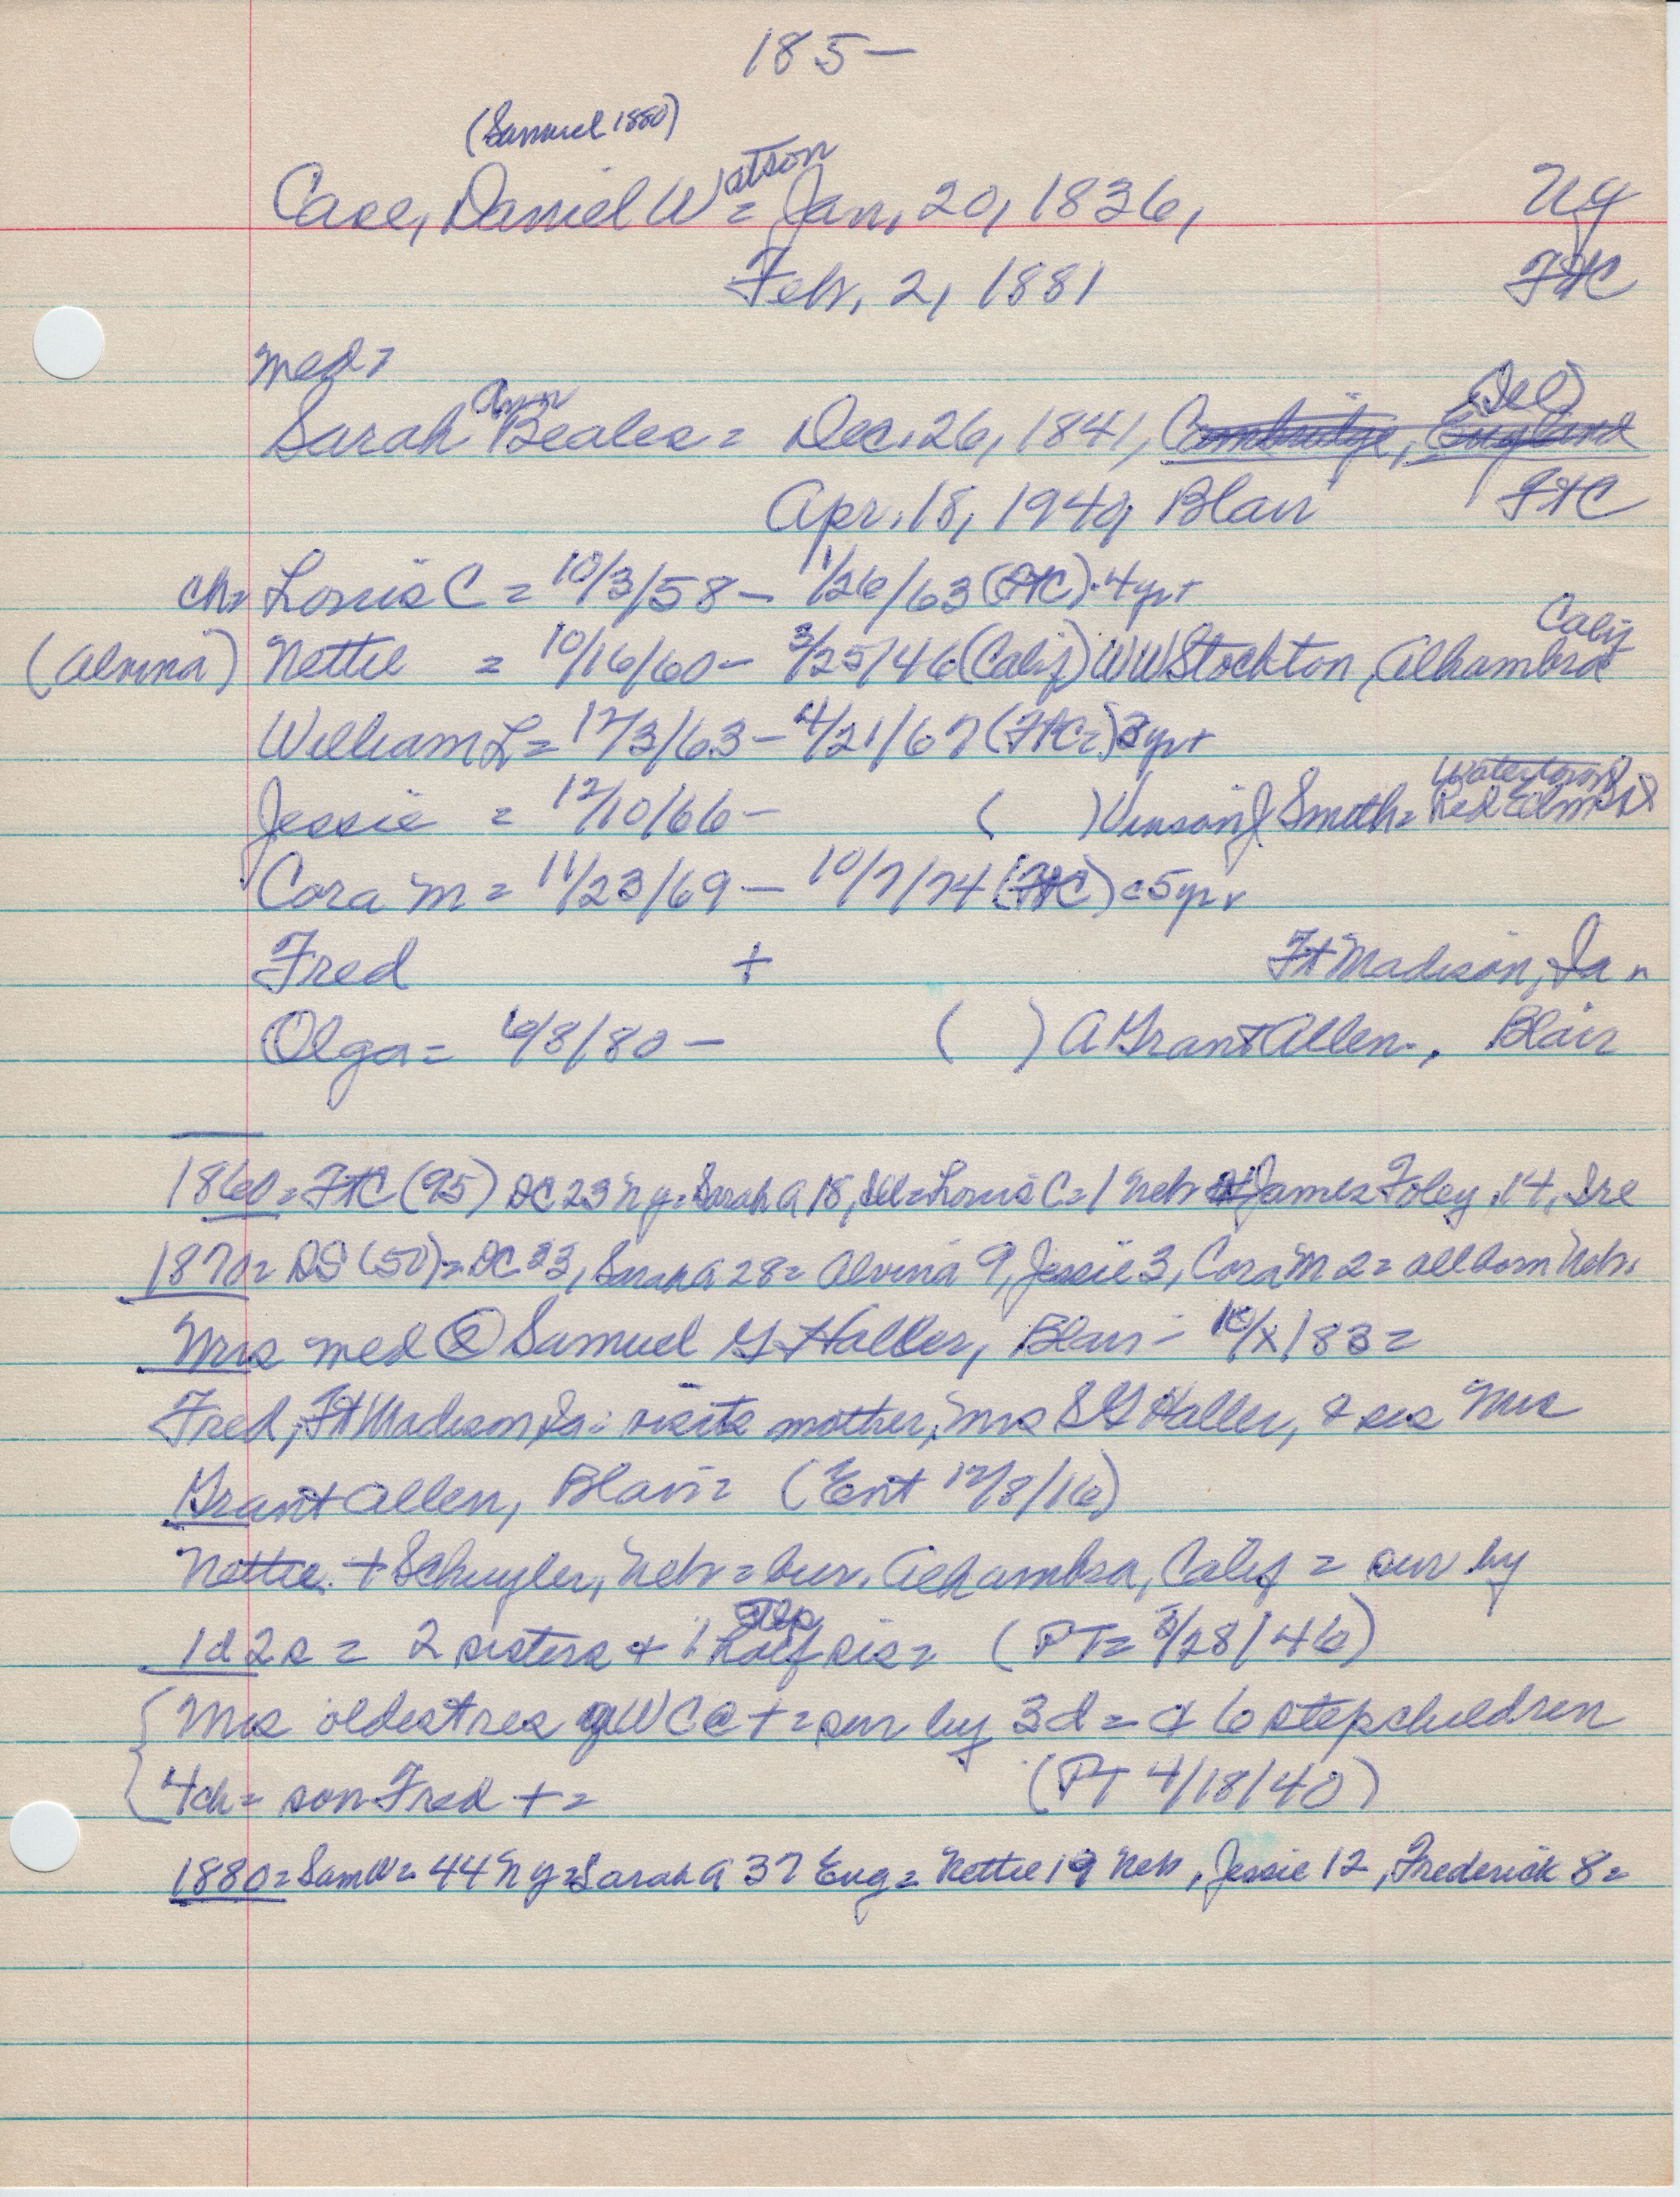 185—
(Samuel 1880)
Case, Daniel Watson = Jan, 20, 1836, NY
Feb, 2, 1881 FtC
med=
Sarah Ann Beales = Dec. 26, 1841, Cambridge, England (Del)
Apr. 18, 1940, Blair FtC
ch= Louis C = 10/3/58 — 11/26/63 (FtC) · 4yr+
(Alvina) Nettie = 10/16/60 — 3/25/46 (Calif) WW Stockton, Alhambra Calif
William L = 12/3/63 — 4/21/67 (FtC=) 3yr+
Jessie = 12/10/66 — ( ) Vinson J Smith = Watertown Red Elm SD
Cora M = 11/23/69 — 10/7/74 (FtC) c5yr
Fred + Ft Madison, Ia
Olga = 6/8/80 — ( ) A Grant Allen., Blair
1860 = FtC (95) DC 23 NY = Sarah A 18, Del = Louis C = 1 Neb James Foley, 14, Ire
1870 = DS (50) = DC 33, Sarah A 28 = Alvina 9, Jessie 3, Cora M 2 = all born Neb.
Mrs med ② Samuel G Haller, Blair — 10/x/83 =
Fred, Ft Madison Ia = visits mother, Mrs S G Haller, & sis Mrs
Grant Allen, Blair = (Ent 12/8/16)
Nettie + Schuyler, Neb = bur. Alhambra, Calif = sur by
1d 2s = 2 sisters & 1 half step sis = (PT = 3/28/46)
Mrs oldest res WC @ + = sur by 3d = & 6 stepchildren
4ch = son Fred + = (PT 4/18/40)
1880 = Sam W = 44 NY = Sarah A 37 Eng = Nettie 19 Neb, Jessie 12, Frederick 8 =